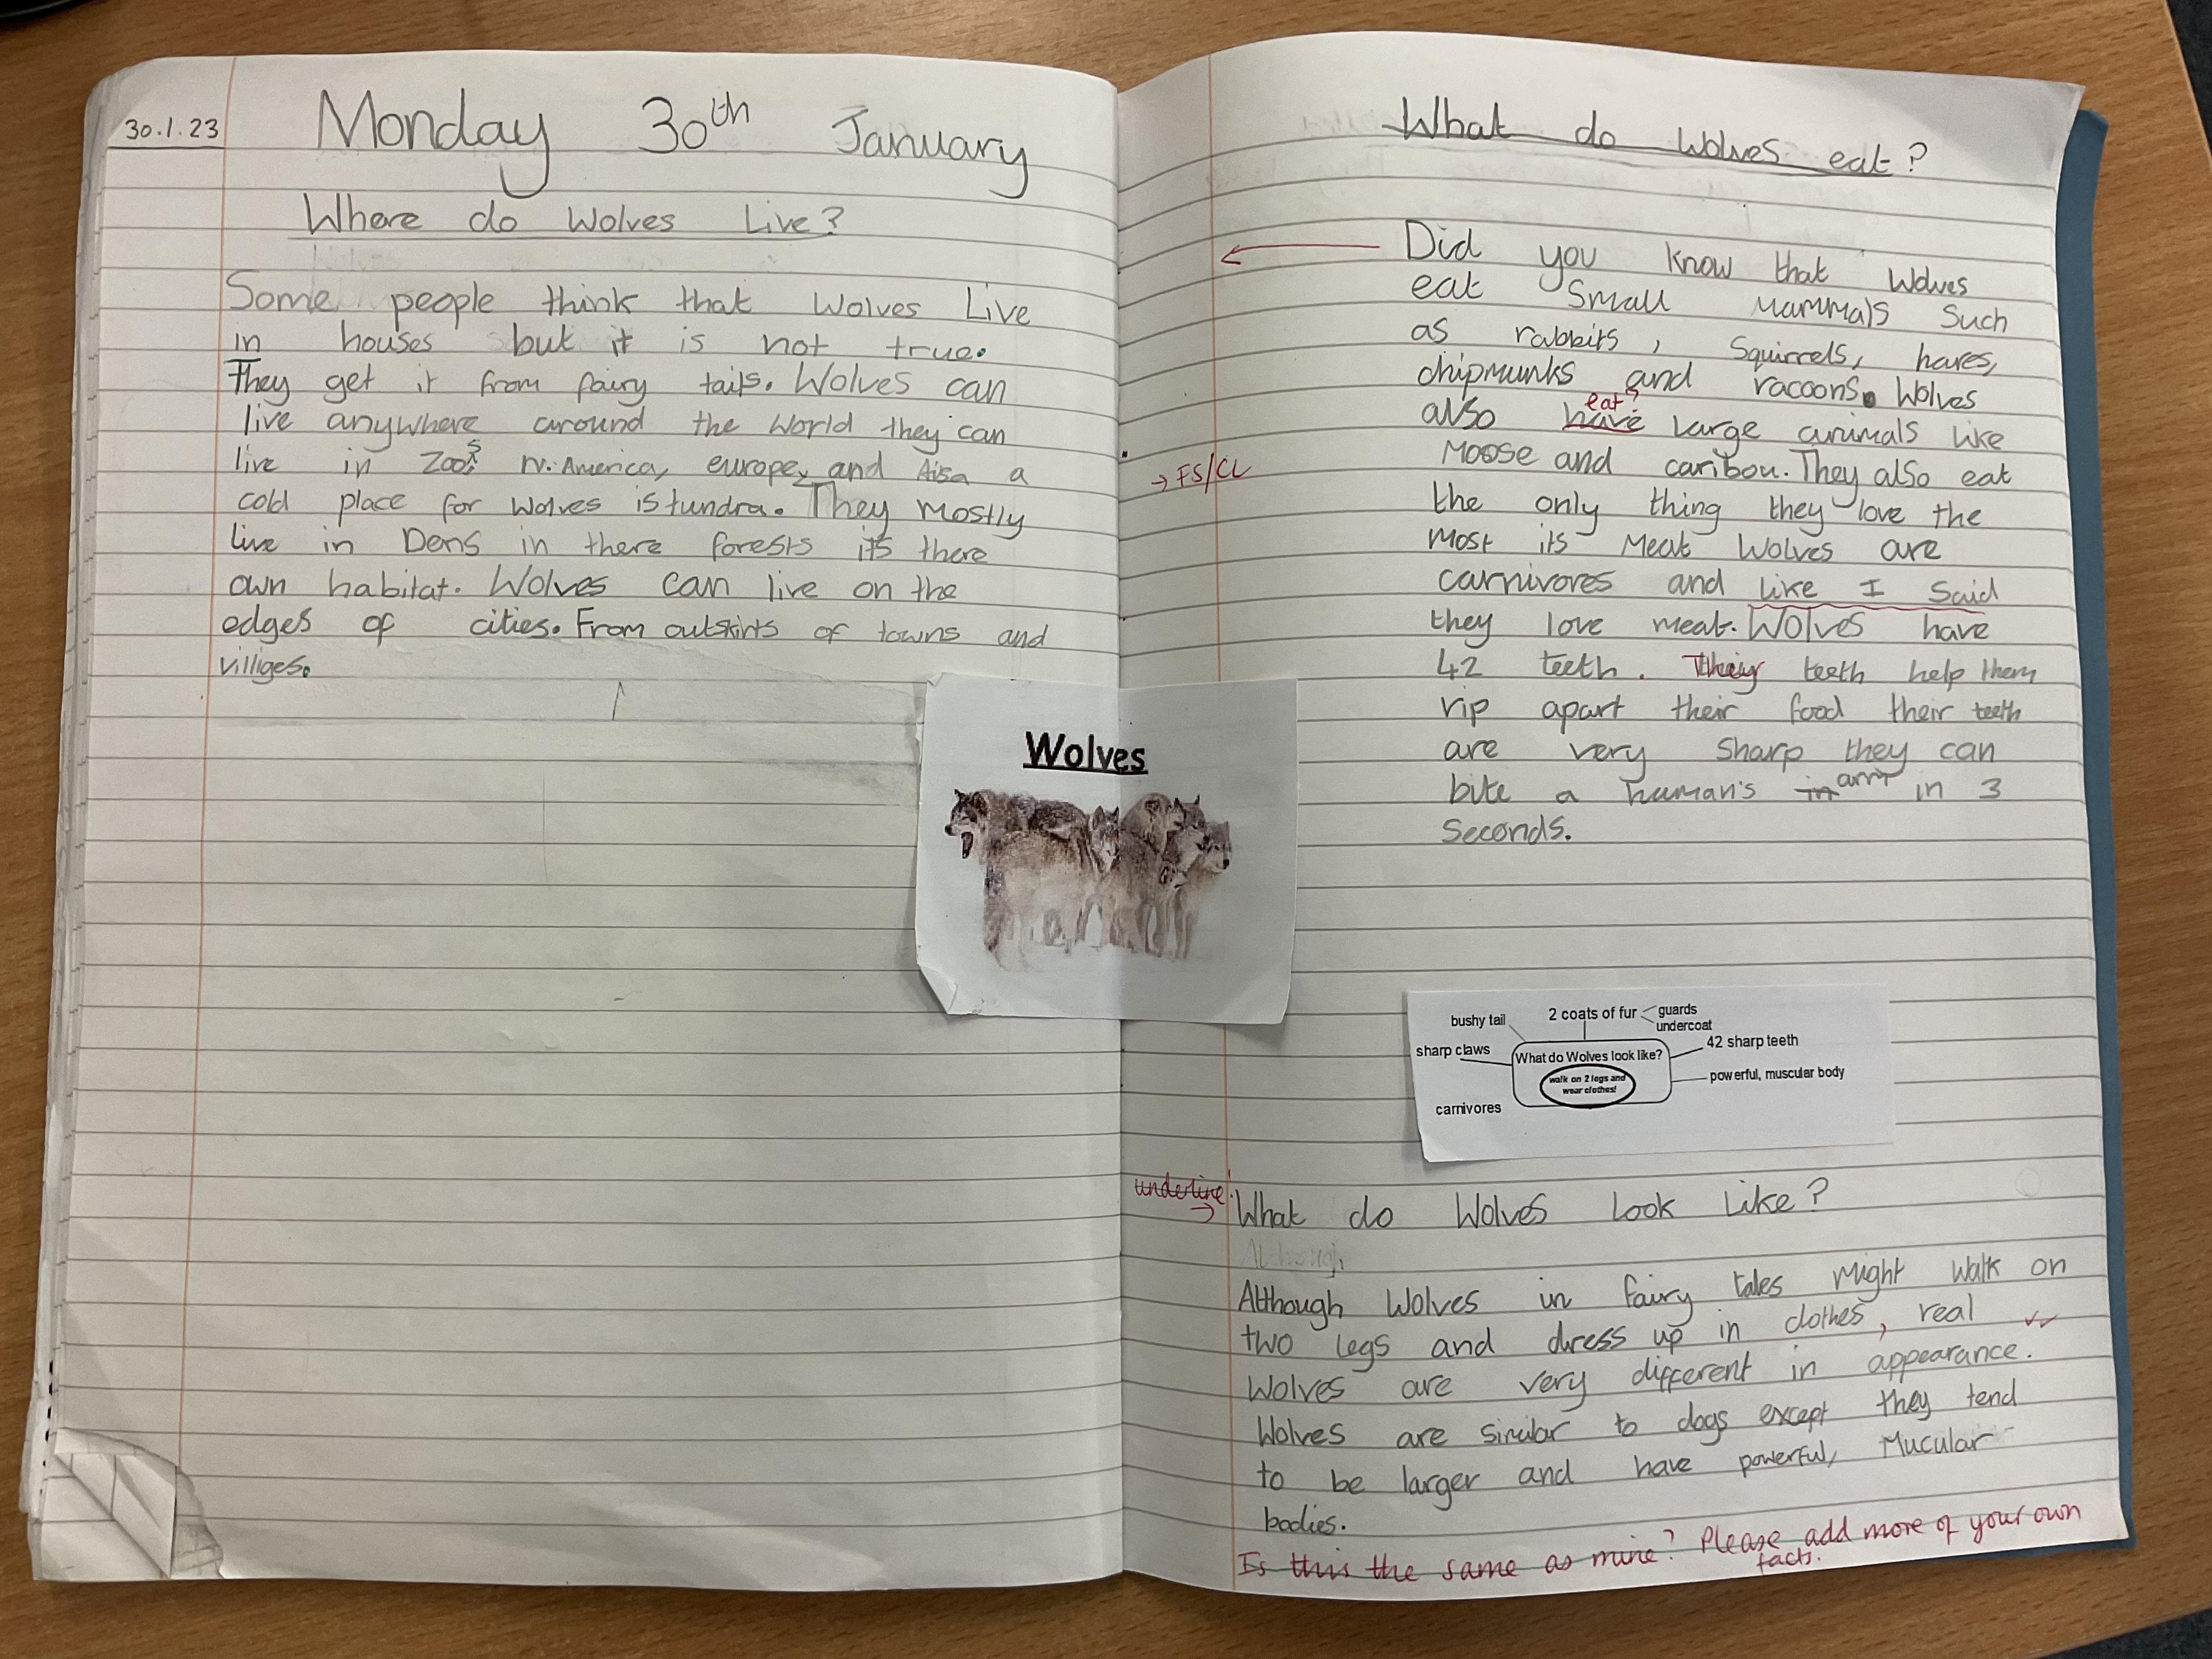 30.1.23
Monday 30th January
Where do Wolves Live?
Some people think that Wolves Live
in houses but it is not true.
They get it from fairy tails. Wolves can
live anywhere around the world they can
live in Zoos N. America, europe, and Aisa a
cold place for wolves is tundra. They mostly
live in Dens in there forests it's there
own habitat. Wolves can live on the
edges of cities. From outskirts of towns and
villiges.
Wolves
What do Wolves eat?
Did you know that Wolves
eat Small Mammals Such
as rabbits, Squirrels, hares,
chipmunks and racoons. Wolves
eat?
also have Large animals like
→ FS/CL
Moose and caribou. They also eat
the only thing they love the
most its Meat Wolves are
carnivores and like I Said
they love meat. Wolves have
42 teeth. They teeth help them
rip apart their food their teeth
are very Sharp they can
bite a human's in arm in 3
Seconds.
bushy tail
2 coats of fur
guards
undercoat
sharp claws
What do Wolves look like?
42 sharp teeth
walk on 2 legs and
wear clothes!
powerful, muscular body
carnivores
underline!
→
What do Wolves Look Like?
Although
Although Wolves in fairy tales Might Walk on
two Legs and dress up in clothes, real
Wolves are very different in appearance.
Wolves are similar to dogs except they tend
to be larger and have powerful, Mucular
bodies.
Is this the same as mine? Please add more of your own
facts.